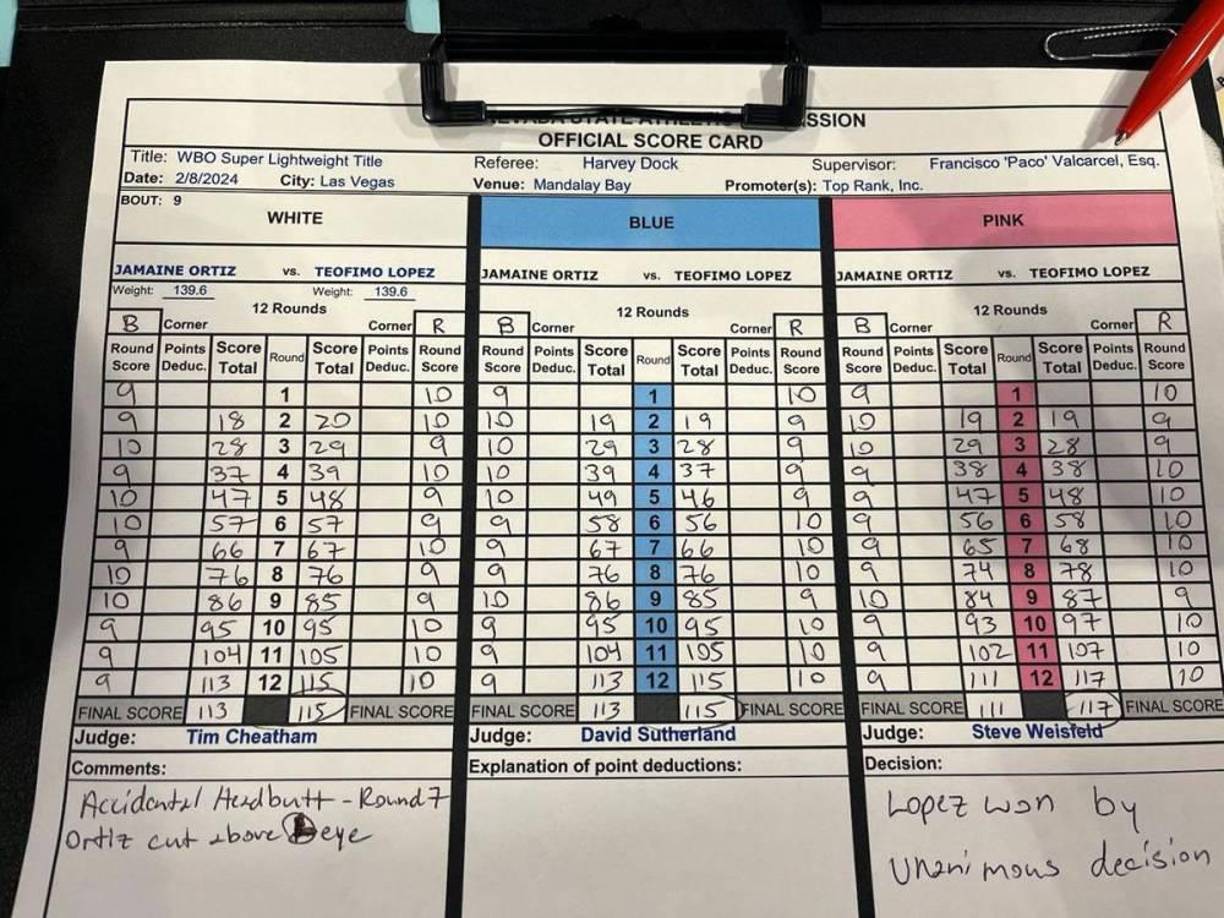 OFFICIAL SCORE CARD
Title: WBO Super Lightweight Title Referee: Harvey Dock Supervisor: Francisco 'Paco' Valcarcel, Esq.
Date: 2/8/2024 City: Las Vegas Venue: Mandalay Bay Promoter(s): Top Rank, Inc.
BOUT: 9
WHITE BLUE PINK
JAMAINE ORTIZ vs. TEOFIMO LOPEZ JAMAINE ORTIZ vs. TEOFIMO LOPEZ JAMAINE ORTIZ vs. TEOFIMO LOPEZ
Weight: 139.6 Weight: 139.6
12 Rounds 12 Rounds 12 Rounds
B Corner Corner R B Corner Corner R B Corner Corner R
Round Points Score Round Score Points Round Round Points Score Round Score Points Round Round Points Score Round Score Points Round
Score Deduc. Total Total Deduc. Score Score Deduc. Total Total Deduc. Score Score Deduc. Total Total Deduc. Score
9 1 10 9 1 10 9 1 10
9 18 2 20 10 10 19 2 19 9 10 19 2 19 9
10 28 3 29 9 10 29 3 28 9 10 29 3 28 9
9 37 4 39 10 10 39 4 37 9 9 38 4 38 10
10 47 5 48 9 10 49 5 46 9 9 47 5 48 10
10 57 6 57 9 9 58 6 56 10 9 56 6 58 10
9 66 7 67 10 9 67 7 66 10 9 65 7 68 10
10 76 8 76 9 9 76 8 76 10 9 74 8 78 10
10 86 9 85 9 10 86 9 85 9 10 84 9 87 9
9 95 10 95 10 9 95 10 95 10 9 93 10 97 10
9 104 11 105 10 9 104 11 105 10 9 102 11 107 10
9 113 12 115 10 9 113 12 115 10 9 111 12 117 10
FINAL SCORE 113 115 FINAL SCORE FINAL SCORE 113 115 FINAL SCORE FINAL SCORE 111 117 FINAL SCORE
Judge: Tim Cheatham Judge: David Sutherland Judge: Steve Weisfeld
Comments: Explanation of point deductions: Decision:
Accidental Headbutt - Round 7 Lopez won by
Ortiz cut above L eye Unanimous decision